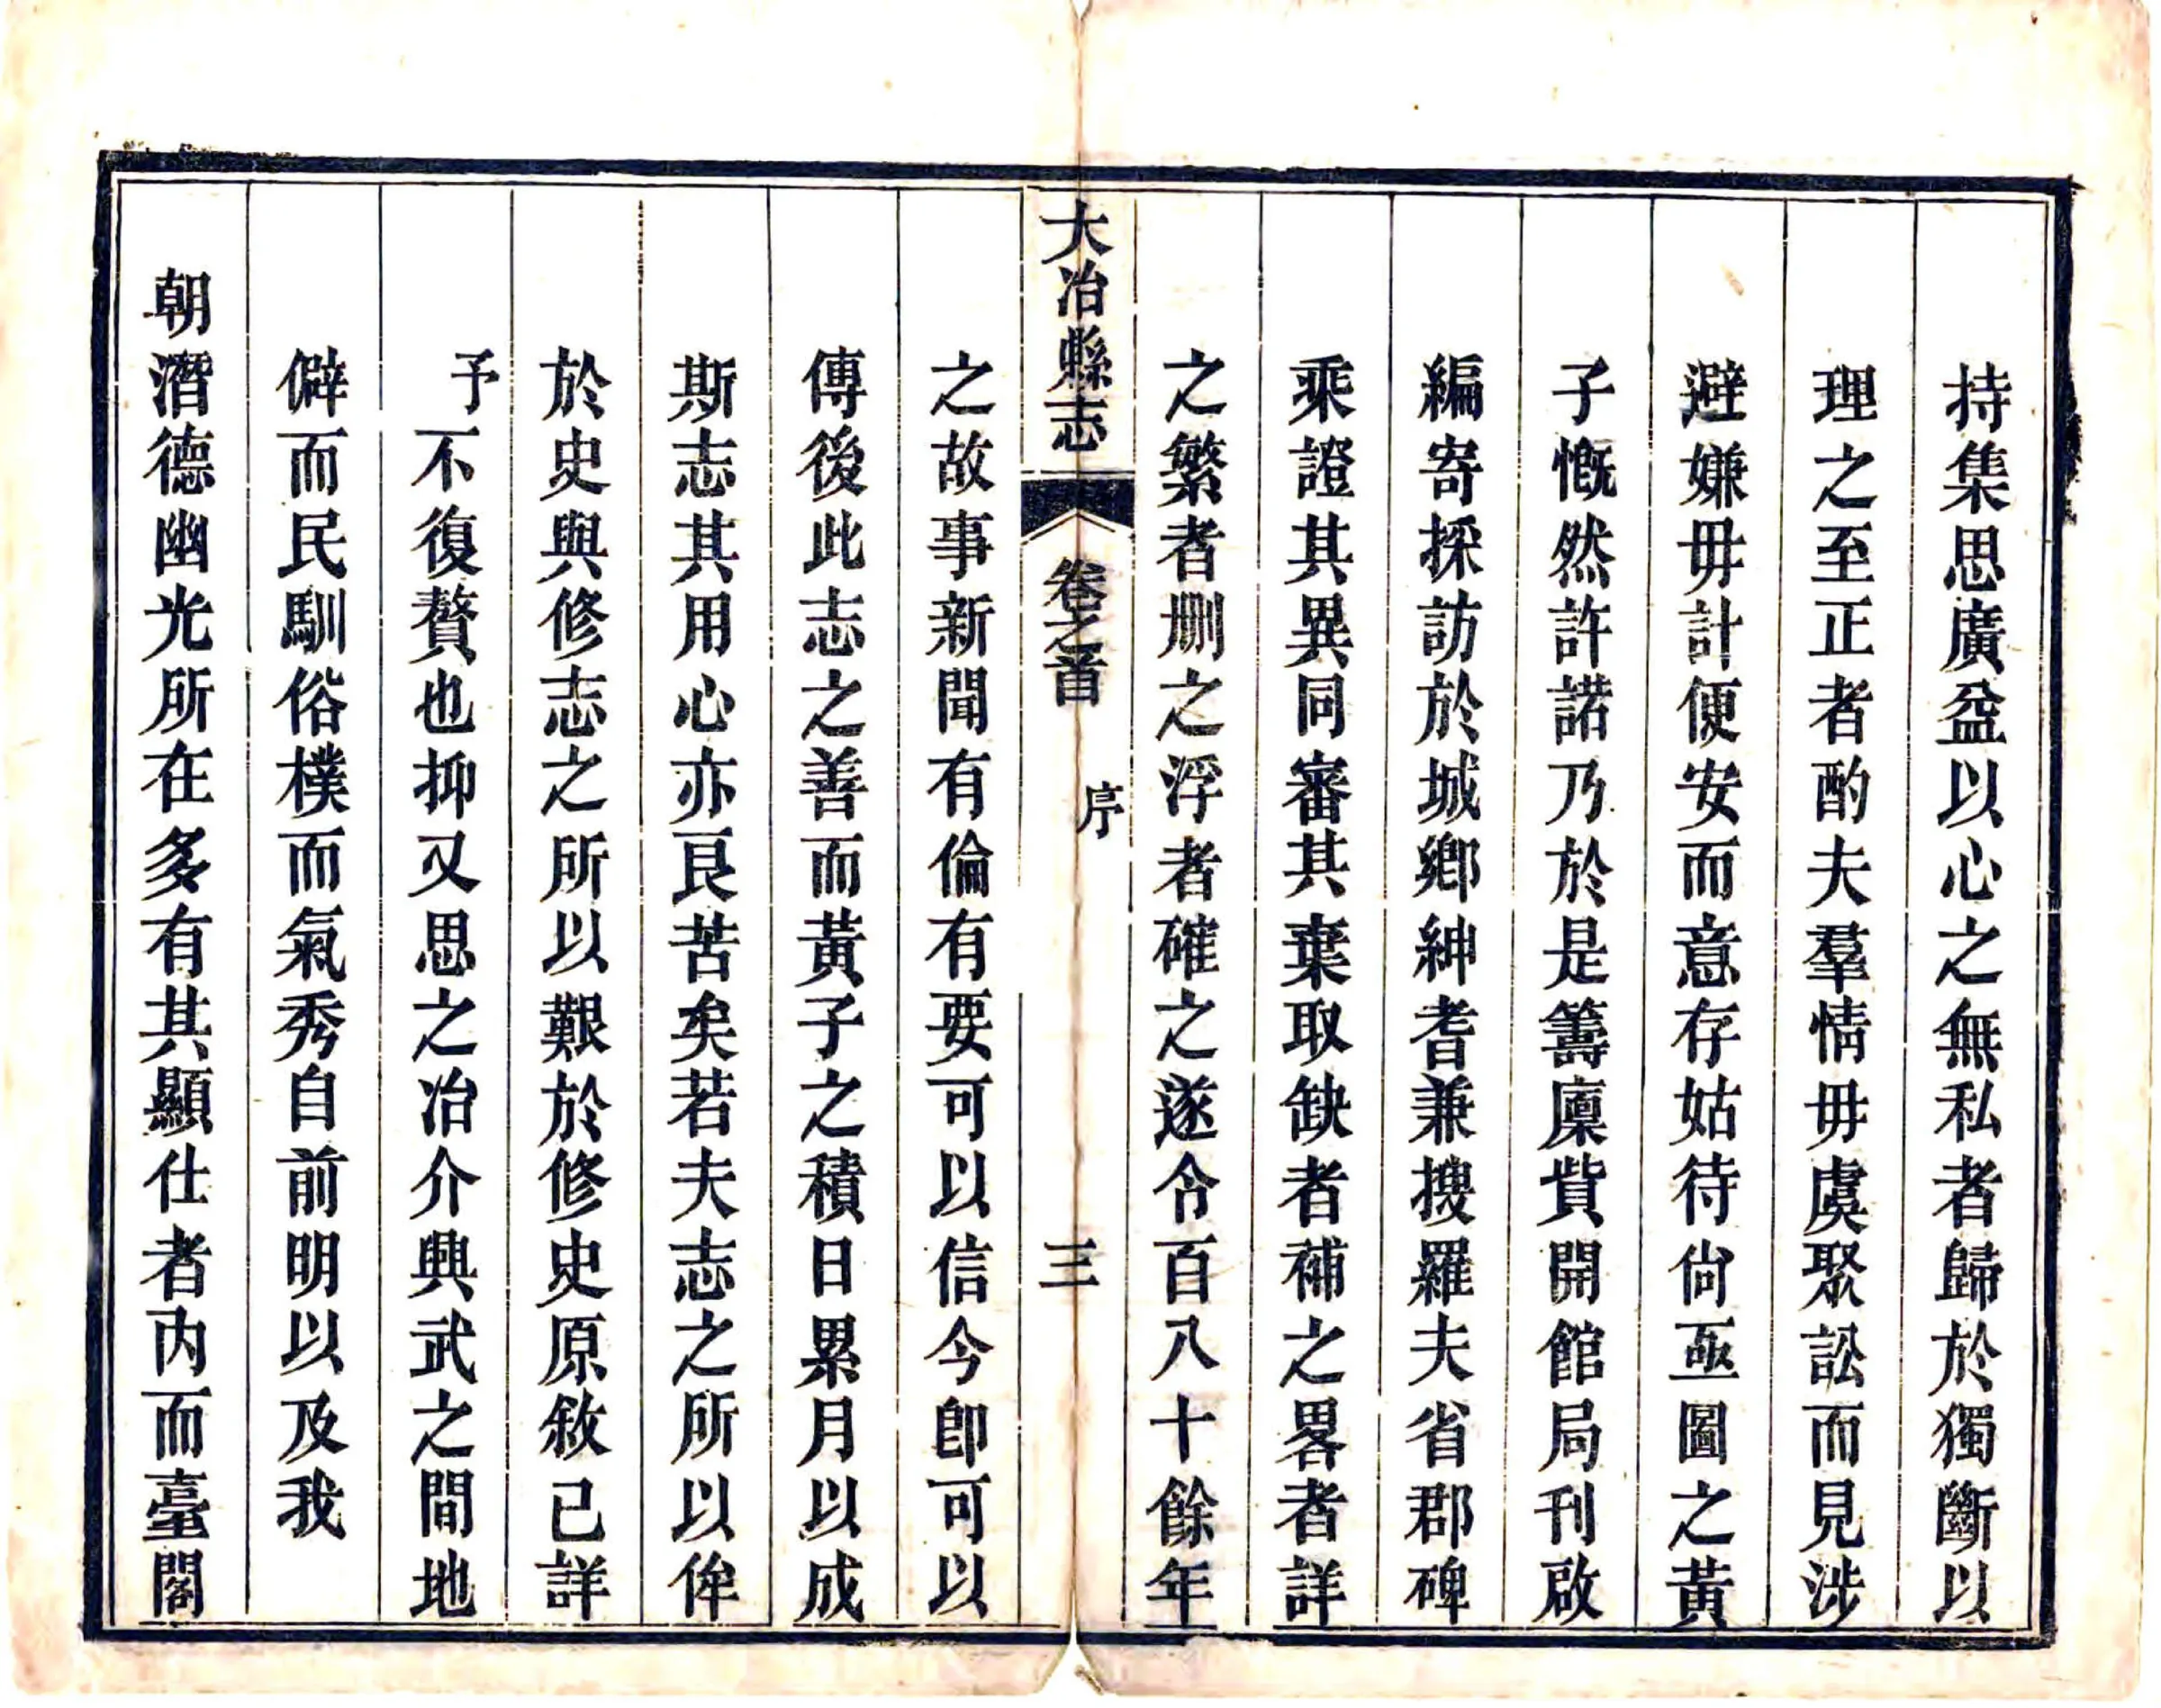 持集思廣益以心之無私者歸於獨斷以
理之至正者酌夫羣情毋虞聚訟而見涉
避嫌毋計便安而意存姑待尙亟圖之黃
子慨然許諾乃於是籌廩貲開館局刊啟
編寄採訪於城鄉紳耆兼搜羅夫省郡碑
乘證其異同審其棄取缺者補之畧者詳
之繁者刪之浮者確之遂令百八十餘年
大冶縣志
卷之首
序
三
之故事新聞有倫有要可以信今卽可以
傳後此志之善而黃子之積日累月以成
斯志其用心亦良苦矣若夫志之所以侔
於史與修志之所以艱於修史原敘已詳
予不復贅也抑又思之冶介興武之間地
僻而民馴俗樸而氣秀自前明以及我
朝潛德幽光所在多有其顯仕者内而臺閣